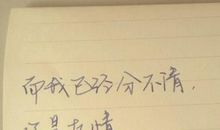 而我已经分不清,
你是友情